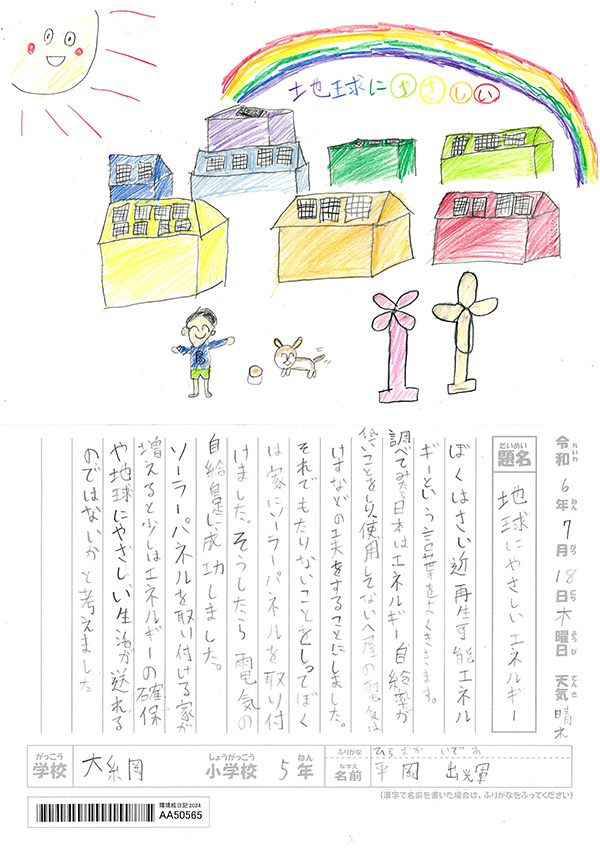 地球にやさしい
令和6年7月18日木曜日 天気 晴れ
れいわ ねん がつ にち ようび てんき
だいめい
題名 地球にやさしいエネルギー
ぼくはさい近再生可能エネル
ギーという言葉をよくききます。
調べてみたら日本はエネルギー自給率が
低いことをしり、使用してないへ屋の電気は
けすなどの工夫をすることにしました。
それでもたりないことをしってぼく
は家にソーラーパネルを取り付
けました。そうしたら電気の
自給自足に成功しました。
ソーラーパネルを取り付ける家が
増えると少しはエネルギーの確保
や地球にやさしい生活が送れる
のではないかと考えました
がっこう しょうがっこう ねん ふりがな ひらおか いであ
学校 大綱 小学校 5年 なまえ 名前 平岡
(漢字で名前を書いた場合は、ふりがなをふってください)
環境絵日記2024
AA50565